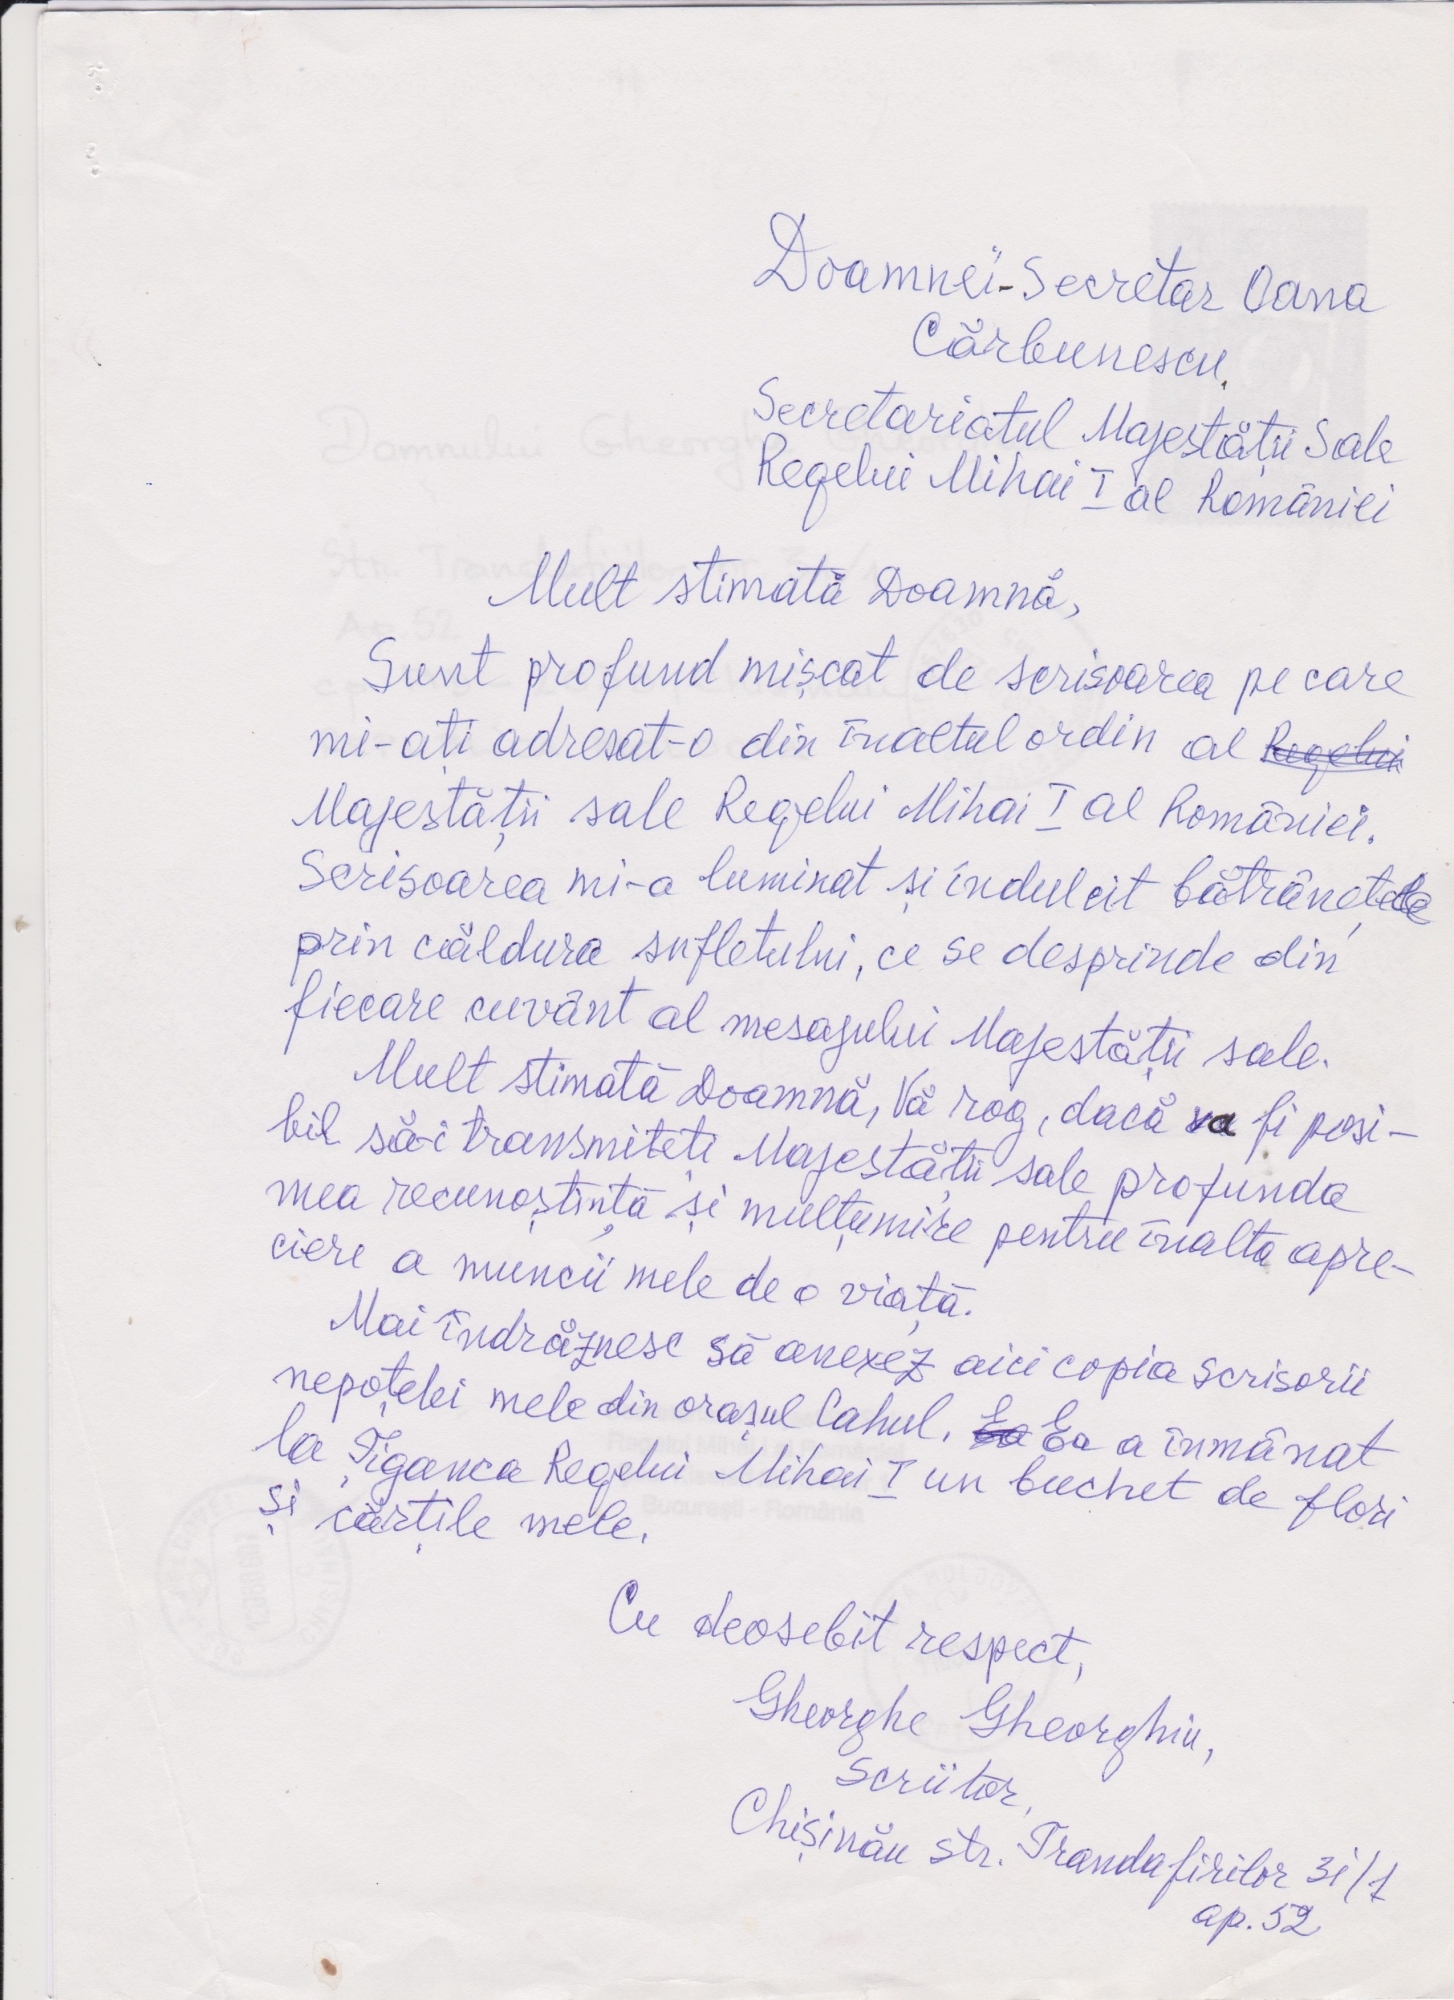 Doamnei-Secretar Oana
Cărbunescu,
Secretariatul Majestății Sale
Regelui Mihai I al României
Mult stimată Doamnă,
Sunt profund mișcat de scrisoarea pe care
mi-ați adresat-o din înaltul ordin al Regelui
Majestății sale Regelui Mihai I al României.
Scrisoarea mi-a luminat și îndulcit bătrânețele
prin căldura sufletului, ce se desprinde din
fiecare cuvânt al mesajului Majestății sale.
Mult stimată Doamnă, Vă rog, dacă va fi posi-
bil să-i transmiteți Majestății sale profunda
mea recunoștință și mulțumire pentru înalta apre-
ciere a muncii mele de o viață.
Mai îndrăznesc să anexez aici copia scrisorii
nepoțelei mele din orașul Cahul. Ea Ea a înmânat
la Țiganca Regelui Mihai I un buchet de flori
și cărțile mele.
Cu deosebit respect,
Gheorghe Gheorghiu,
scriitor,
Chișinău str. Trandafirilor 31/1
ap. 52